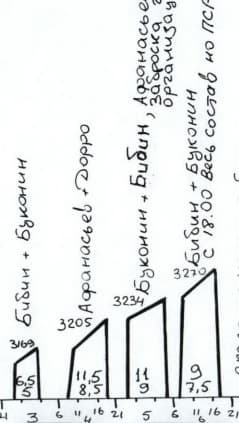 Бибин + Буконин
Афанасьев + Дорро
Буконин + Бибин, Афанасье
Заброска
организац
Бибин + Буконин
с 18.00 весь состав но ПСР
3169
3205
3234
3270
6,5
5
11,5
8,5
11
9
9
7,5
3
6 11 16 21
4
5
6 11 16 21
6